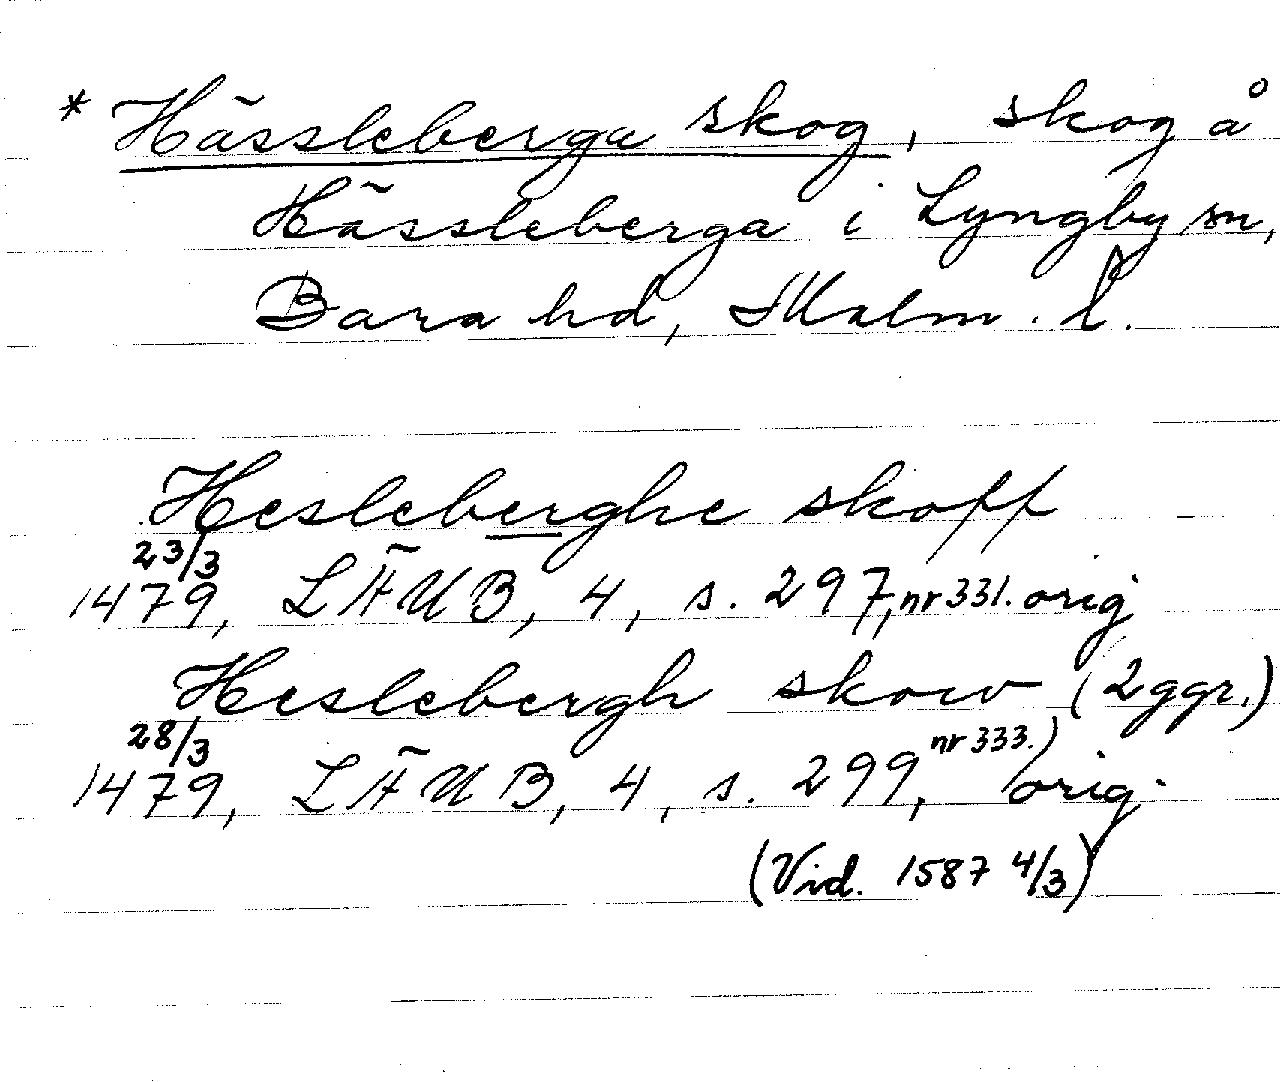 * Hässleberga skog, skog å
Hässleberga i Lyngby sn,
Bara hd, Malm. l.
Hesleberghe skoff
23/3
1479, LÄUB, 4, s. 297, nr 331. orig
Heslebergh skow (2ggr.)
28/3
1479, LÄUB, 4, s. 299, nr 333.) orig.
(Vid. 1587 4/3)